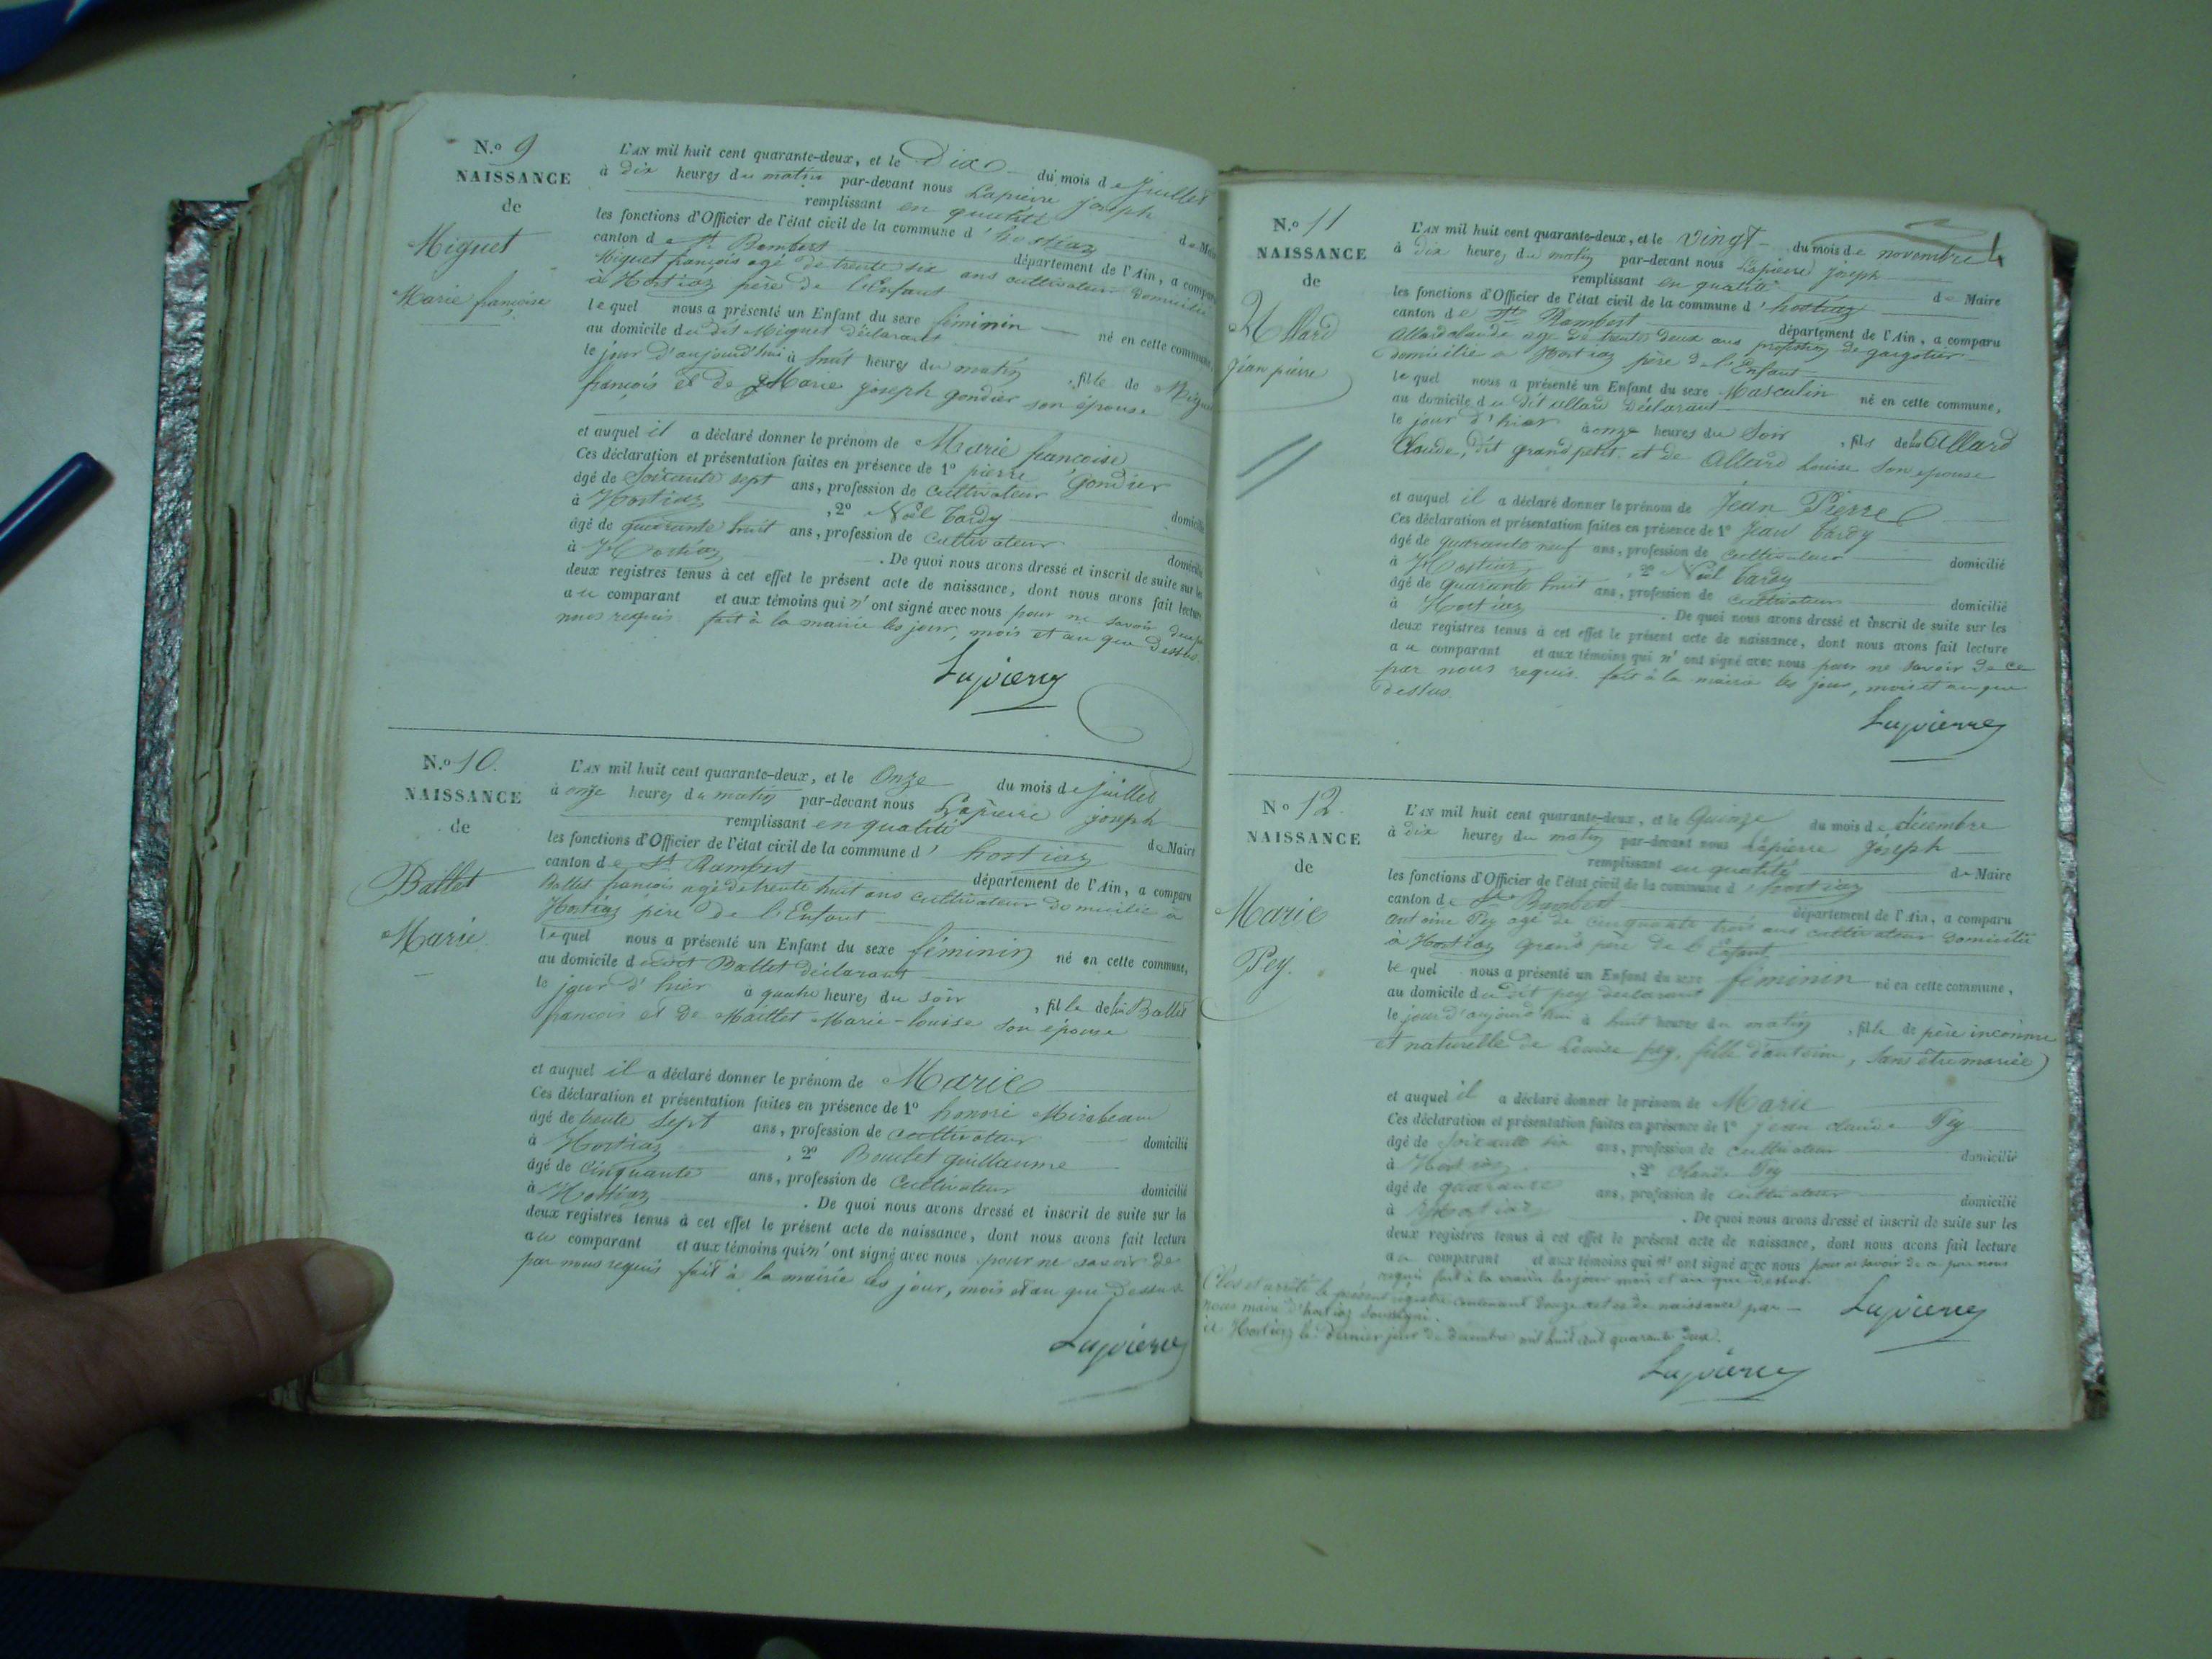 N.o 9
NAISSANCE
de
Miguet
Marie françoise
L'AN mil huit cent quarante-deux, et le Dix du mois de Juillet
à dix heures du matin par-devant nous Lapierre joseph
remplissant en qualité de Maire
les fonctions d'Officier de l'état civil de la commune d'hostiaz
canton de St Rambert département de l'Ain, a comparu
Miguet françois agé de trente six ans cultivateur domicilié
à Hostiaz père de l'Enfant
lequel nous a présenté un Enfant du sexe féminin né en cette commune,
au domicile du dit Miguet déclarant
le jour d'aujourd'hui à huit heures du matin, fille de Miguet
françois et de Marie joseph gondier son épouse
et auquel il a déclaré donner le prénom de Marie françoise
Ces déclaration et présentation faites en présence de 1º pierre Gondier
âgé de Soixante sept ans, profession de cultivateur domicilié
à Hostiaz, 2º Noël tardy
âgé de quarante huit ans, profession de cultivateur domicilié
à Hostiaz. De quoi nous avons dressé et inscrit de suite sur les
deux registres tenus à cet effet le présent acte de naissance, dont nous avons fait lecture
au comparant et aux témoins qui n'ont signé avec nous pour ne savoir de ce par
nous requis fait à la mairie les jour, mois et an que dessus.
Lapierre
N.o 10.
NAISSANCE
de
Ballet
Marie
L'AN mil huit cent quarante-deux, et le Onze du mois de juillet
à onze heures du matin par-devant nous Lapierre joseph
remplissant en qualité de Maire
les fonctions d'Officier de l'état civil de la commune d'hostiaz
canton de St Rambert département de l'Ain, a comparu
Ballet françois agé de trente huit ans cultivateur domicilié à
Hostiaz père de l'Enfant
lequel nous a présenté un Enfant du sexe féminin né en cette commune,
au domicile dudit Ballet déclarant
le jour d'hier à quatre heures du soir, fille de lui Ballet
françois et de Maillet Marie-louise son épouse
et auquel il a déclaré donner le prénom de Marie
Ces déclaration et présentation faites en présence de 1º honoré Mirabeau
âgé de trente sept ans, profession de cultivateur domicilié
à Hostiaz, 2º Boutet guillaume
âgé de cinquante ans, profession de Cultivateur domicilié
à Hostiaz. De quoi nous avons dressé et inscrit de suite sur la
deux registres tenus à cet effet le présent acte de naissance, dont nous avons fait lecture
au comparant et aux témoins qui n'ont signé avec nous pour ne savoir de
par nous requis fait à la mairie les jour, mois et an que dessus
Lapierre
N.o 11
NAISSANCE
de
Allard
Jean pierre
L'AN mil huit cent quarante-deux, et le vingt du mois de novembre
à dix heures du matin par-devant nous Lapierre joseph
remplissant en qualité de Maire
les fonctions d'Officier de l'état civil de la commune d'hostiaz
canton de St Rambert département de l'Ain, a comparu
Allard claude agé de trente deux ans profession de gargotier
domicilié à Hostiaz père de l'Enfant
lequel nous a présenté un Enfant du sexe Masculin né en cette commune,
au domicile du dit allard déclarant
le jour d'hier à onze heures du Soir, fils de lui Allard
Claude, dit grand petit et de Allard Louise Son epouse
et auquel il a déclaré donner le prénom de Jean Pierre
Ces déclaration et présentation faites en présence de 1º Jean tardy
âgé de quarante neuf ans, profession de cultivateur domicilié
à Hostiaz, 2º Noël tardy
âgé de quarante huit ans, profession de cultivateur domicilié
à Hostiaz. De quoi nous avons dressé et inscrit de suite sur les
deux registres tenus à cet effet le présent acte de naissance, dont nous avons fait lecture
au comparant et aux témoins qui n'ont signé avec nous pour ne savoir de ce
par nous requis. fait à la mairie les jour, mois et an que
dessus.
Lapierre
N.o 12.
NAISSANCE
de
Marie
Pey.
L'AN mil huit cent quarante-deux, et le Quinze du mois de décembre
à dix heures du matin par-devant nous Lapierre Joseph
remplissant en qualité de Maire
les fonctions d'Officier de l'état civil de la commune d'hostiaz
canton de St Rambert département de l'Ain, a comparu
antoine Pey agé de cinquante trois ans cultivateur domicilié
à Hostiaz grand père de l'Enfant
lequel nous a présenté un Enfant du sexe féminin né en cette commune,
au domicile du dit pey déclarant
le jour d'aujourd'hui à huit heures du matin, fille de père inconnu
et naturelle de Louise pey, fille d'antoine, sans être mariée
et auquel il a déclaré donner le prénom de Marie
Ces déclaration et présentation faites en présence de 1º jean claude Pey
âgé de Soixante six ans, profession de cultivateur domicilié
à Hostiaz, 2º claude Pey
âgé de quarante ans, profession de cultivateur domicilié
à Hostiaz. De quoi nous avons dressé et inscrit de suite sur les
deux registres tenus à cet effet le présent acte de naissance, dont nous avons fait lecture
au comparant et aux témoins qui n'ont signé avec nous pour ne savoir de ce par nous
requis fait à la mairie les jour mois et an que dessus.
Lapierre
Clos et arrêté le présent registre contenant douze actes de naissance par
nous maire d'hostiaz soussigné.
à Hostiaz le dernier jour de decembre mil huit cent quarante deux.
Lapierre